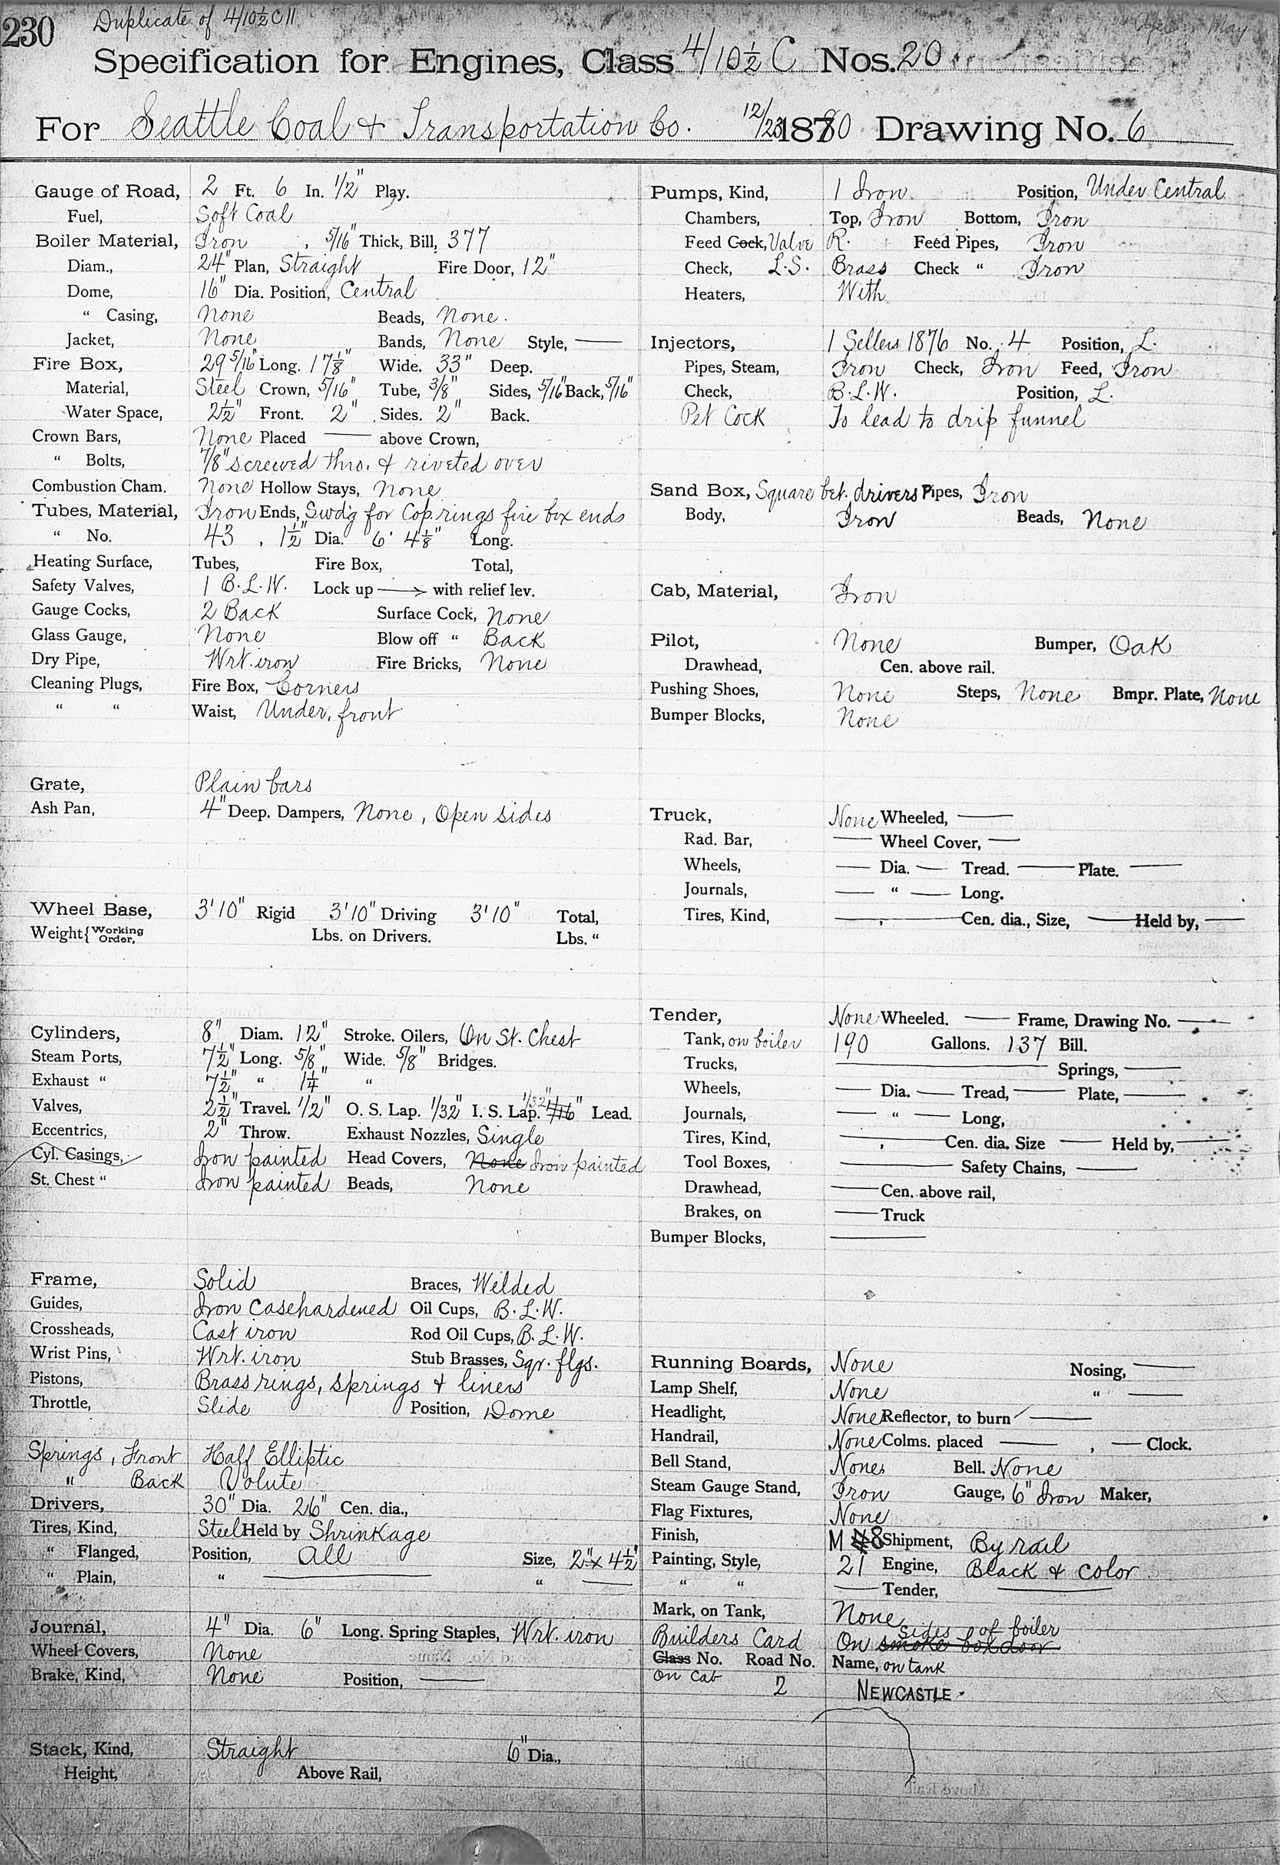 230
Duplicate of 4/10½ C 11
Specification for Engines, Class 4/10½ C Nos. 20
For Seattle Coal & Transportation Co. 12/23 1880 Drawing No. 6
Gauge of Road, 2 Ft. 6 In. 1/2" Play.
Fuel, Soft Coal
Boiler Material, Iron, 5/16" Thick, Bill, 377
Diam., 24" Plan, Straight Fire Door, 12"
Dome, 16" Dia. Position, Central
" Casing, None Beads, None.
Jacket, None Bands, None Style, —
Fire Box, 29 5/16" Long. 17 7/8" Wide. 33" Deep.
Material, Steel Crown, 5/16" Tube, 3/8" Sides, 5/16" Back, 5/16"
Water Space, 2½" Front. 2" Sides. 2" Back.
Crown Bars, None Placed — above Crown,
" Bolts, 7/8" screwed thro. & riveted over
Combustion Cham. None Hollow Stays, None
Tubes, Material, Iron Ends, Swd'g for Cop. rings fire box ends
" No. 43, 1½" Dia. 6' 4⅛" Long.
Heating Surface, Tubes, Fire Box, Total,
Safety Valves, 1 B.L.W. Lock up → with relief lev.
Gauge Cocks, 2 Back Surface Cock, None
Glass Gauge, None Blow off " Back
Dry Pipe, Wrt. iron Fire Bricks, None
Cleaning Plugs, Fire Box, Corners
" " Waist, Under, front
Grate, Plain bars
Ash Pan, 4" Deep. Dampers, None, Open sides
Wheel Base, 3'10" Rigid 3'10" Driving 3'10" Total,
Weight { Working Order, Lbs. on Drivers. Lbs. "
Cylinders, 8" Diam. 12" Stroke. Oilers, On St. Chest
Steam Ports, 7½" Long. 5/8" Wide. 5/8" Bridges.
Exhaust " 7½" " 1¼" "
Valves, 2½" Travel. 1/2" O. S. Lap. 1/32" I. S. Lap. 1/32" 1/16" Lead.
Eccentrics, 2" Throw. Exhaust Nozzles, Single
Cyl. Casings, Iron painted Head Covers, None Iron painted
St. Chest " Iron painted Beads, None
Frame, Solid Braces, Welded
Guides, Iron Casehardened Oil Cups, B.L.W.
Crossheads, Cast iron Rod Oil Cups, B.L.W.
Wrist Pins, Wrt. iron Stub Brasses, Sqr. flgs.
Pistons, Brass rings, springs & liners
Throttle, Slide Position, Dome
Springs, Front Half Elliptic
" Back Volute
Drivers, 30" Dia. 26" Cen. dia.,
Tires, Kind, Steel Held by Shrinkage
" Flanged, Position, All Size, 2" x 4½"
" Plain, " — " —
Journal, 4" Dia. 6" Long. Spring Staples, Wrt. iron
Wheel Covers, None
Brake, Kind, None Position, —
Stack, Kind, Straight 6" Dia.,
Height, Above Rail,
Pumps, Kind, 1 Iron Position, Under Central
Chambers, Top, Iron Bottom, Iron
Feed Cock, Valve R. Feed Pipes, Iron
Check, L.S. Brass Check " Iron
Heaters, With
Injectors, 1 Sellers 1876 No. 4 Position, L.
Pipes, Steam, Iron Check, Iron Feed, Iron
Check, B.L.W. Position, L.
Pet Cock To lead to drip funnel
Sand Box, Square bet. drivers Pipes, Iron
Body, Iron Beads, None
Cab, Material, Iron
Pilot, None Bumper, Oak
Drawhead, Cen. above rail.
Pushing Shoes, None Steps, None Bmpr. Plate, None
Bumper Blocks, None
Truck, None Wheeled, —
Rad. Bar, — Wheel Cover, —
Wheels, — Dia. — Tread. — Plate. —
Journals, — " — Long.
Tires, Kind, —, — Cen. dia., Size, — Held by, —
Tender, None Wheeled. — Frame, Drawing No. —
Tank, on boiler 190 Gallons. 137 Bill.
Trucks, — Springs, —
Wheels, — Dia. — Tread, — Plate, —
Journals, — " — Long,
Tires, Kind, —, — Cen. dia, Size — Held by, —
Tool Boxes, — Safety Chains, —
Drawhead, — Cen. above rail,
Brakes, on — Truck
Bumper Blocks, —
Running Boards, None Nosing, —
Lamp Shelf, None " —
Headlight, None Reflector, to burn —
Handrail, None Colms. placed —, — Clock.
Bell Stand, None Bell. None
Steam Gauge Stand, Iron Gauge, 6" Iron Maker,
Flag Fixtures, None
Finish, M 8 Shipment, By rail
Painting, Style, 21 Engine, Black & color
" " — Tender, —
Mark, on Tank, None
Builders Card On Sides of boiler smoke box door
Class No. Road No. Name, on tank
on Cab 2 NEWCASTLE.